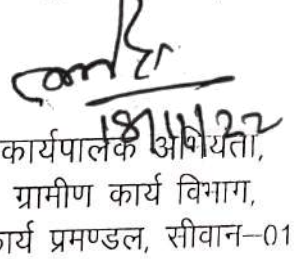 18/11/22
कार्यपालक अभियंता,
ग्रामीण कार्य विभाग,
कार्य प्रमण्डल, सीवान–01